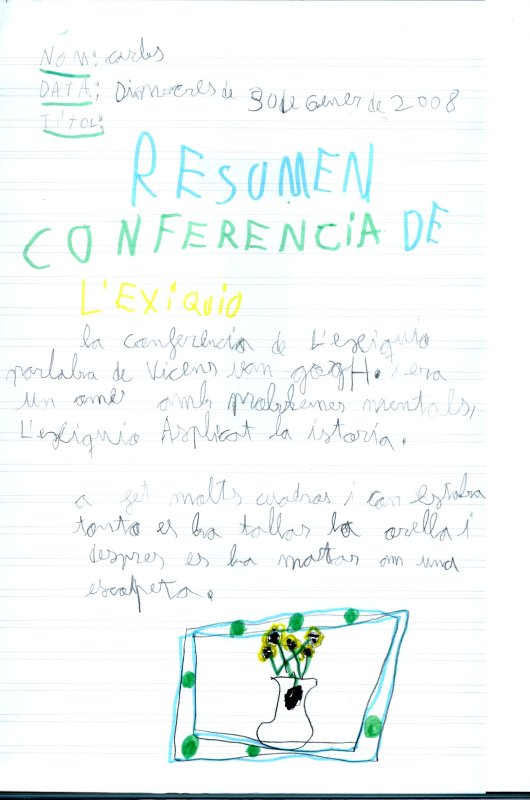 NOM: carles
DATA: Dimecres de 30 de Gener de 2008
TÍTOL:
RESUMEN
CONFERENCIA DE
L'EXIQUIO
la conferència de L'exiquio
parlaba de Vicens van gogH. i era
un ome amb problemes mentals,
L'exiquio Asplicat la istoria.
a fet molts cuadras i can estaba
tonto es ba tallar la orella i
despres es ba mattar am una
escopeta.